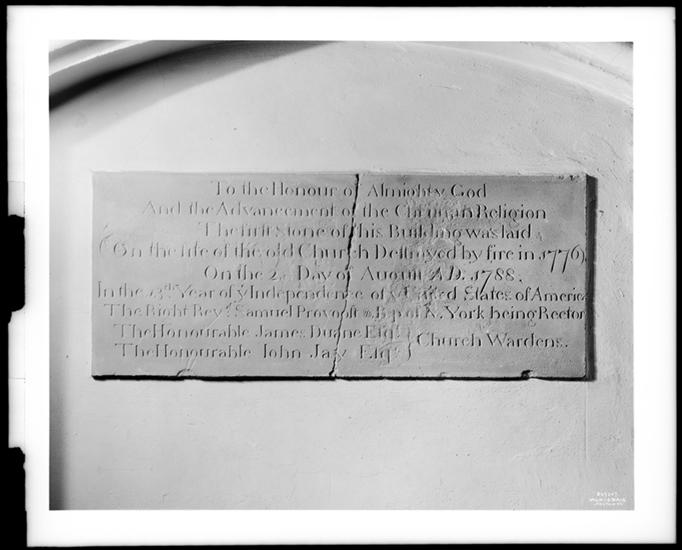 To the Honour of Almighty God
And the Advancement of the Chriſtian Religion
The firſt Stone of this Building was laid
(On the ſite of the old Church Deſtroyed by fire in 1776)
On the 21 Day of Auguſt A.D. 1788.
In the 13th Year of ẙ Independence of ẙ United States of America
The Right Revd. Samuel Provooſt D.D. Bp. of N. York being Rector
The Honourable James Duane Eſqr.
The Honourable John Jay Eſqr. } Church Wardens.